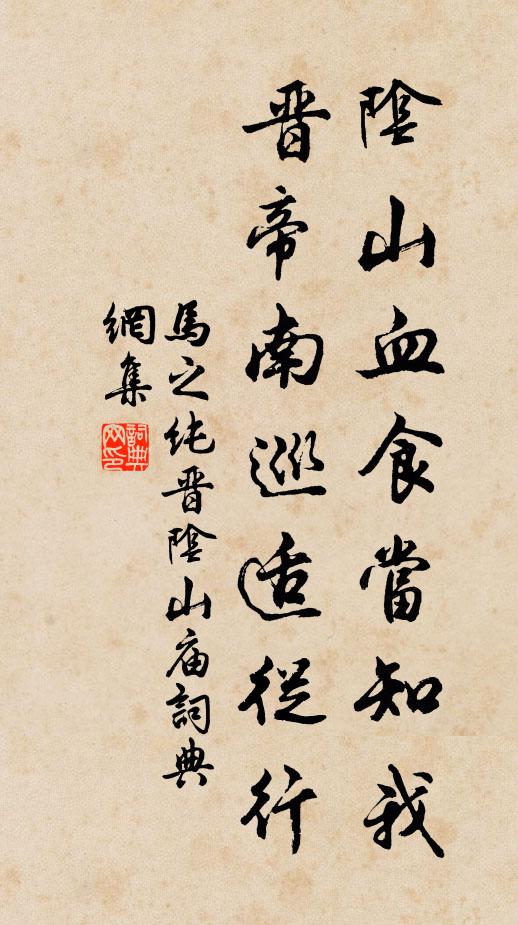 陰山血食當知我
晋帝南巡适從行
馬之純晋陰山庙詞典
網集
詞典網印